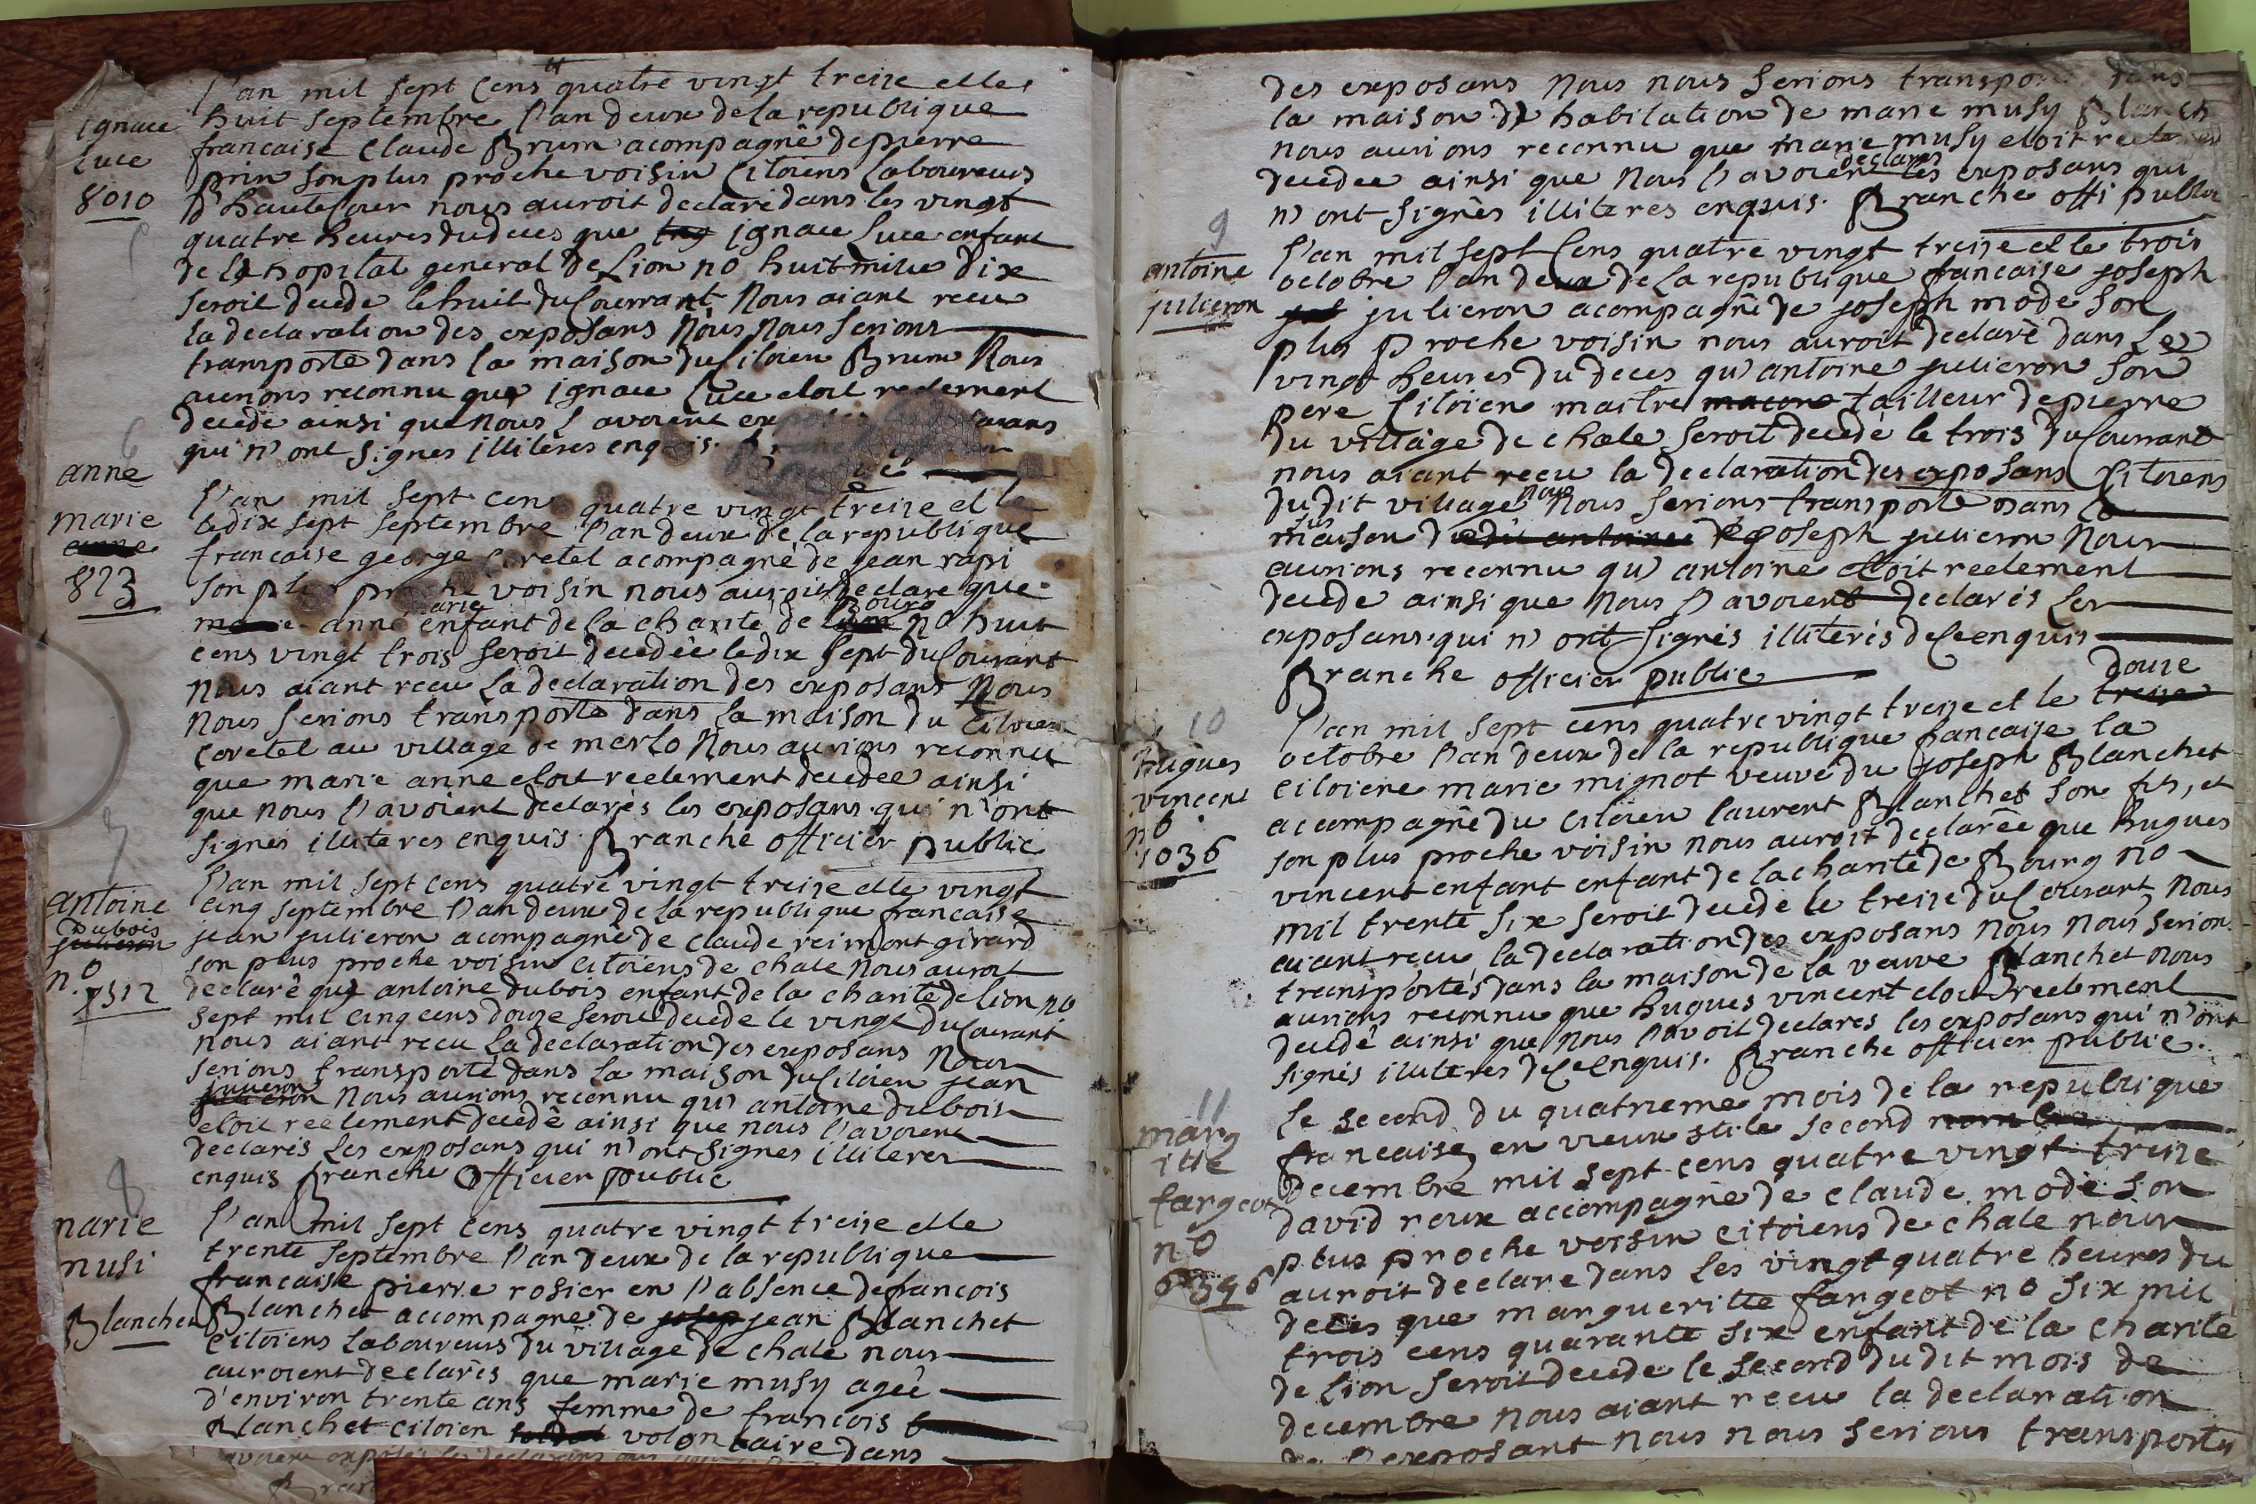 L'an mil sept cens quatre vingt treize et le
huit septembre l'an deux de la republique
francaise claude Brum acompagné de pierre
prin son plus proche voisin citoiens laboureurs
d'hautecour nous auroit declaré dans les vingt
quatre heures du deces que ignace luce enfant
de l'hopital general de Lion no huit mille dix
seroit decedé le huit du courrant Nous aiant recu
la declaration des exposans Nous Nous serions
transporté dans la maison du citoien Brum Nous
aurions reconnu que ignace luce etoit reelement
decedé ainsi que Nous l'avoient
qui n'ont signes illiteres enquis.
ignace
luce
8010
6
anne
marie
anne
823
L'an mil sept cens quatre vingt treize et le
le dix sept septembre l'an deux de la republique
francaise george coretel acompagné de jean rapi
son plus proche voisin nous auroit declare que
marie anne enfant de la charité de Bourg no huit
cens vingt trois seroit decedée le dix sept du courant
Nous aiant recu la declaration des exposans Nous
Nous serions transporté dans la maison du citoien
coretel au village de merlo Nous aurions reconnu
que marie anne etoit reelement decedee ainsi
que nous l'avoient declarés les exposans qui n'ont
signes illiteres enquis Branche officier public
7
antoine
dubois
julieron
no
7512
L'an mil sept cens quatre vingt treize et le vingt
cinq septembre l'an deux de la republique francaise
jean julieron acompagné de claude reimont girard
son plus proche voisin citoiens de chale nous auroit
declaré que antoine dubois enfant de la charité de lion no
sept mil cinq cens douze seroit decedé le vingt du courant
nous aiant recu la declaration des exposans Nous
serions transporté dans la maison du citoien jean
julieron Nous aurions reconnu qu'antoine dubois
etoit reelement decedé ainsi que nous l'avoient
declarés les exposans qui n'ont signes illiteres
enquis Branche officier public
8
marie
musi
Blanchet
L'an mil sept cens quatre vingt treize et le
trente septembre l'an deux de la republique
francaise pierre rosier en l'absence de francois
Blanchet accompagné de josep jean Blanchet
citoiens laboureurs du village de chale nous
auroient declarés que marie musy agée
d'environ trente ans femme de francois b
Blanchet citoien soldat volontaire dans
des exposans Nous nous serions transporté dans
la maison d'habitation de marie musy Blanch
nous aurions reconnu que marie musy etoit
decedee ainsi que nous l'avoient declarés les exposans qui
n'ont signès illiteres enquis. Branche offi public
9
antoine
julieron
L'an mil sept cens quatre vingt treize et le trois
octobre l'an deux de la republique francaise joseph
jul julieron acompagné de joseph mode son
plus proche voisin nous auroit declaré dans les
vingt heures du deces qu'antoine julieron son
pere citoien maitre macon tailleur de pierre
du village de chale seroit decedé le trois du courrant
nous aiant recu la declaration des exposans citoiens
du dit village nous Nous serions transporté dans la
maison du dit antoine joseph julieron Nous
aurions reconnu qu'antoine etoit reelement
decedé ainsi que Nous l'avoient declarés les
exposans qui n'ont signés illiterés de ce enquis
Branche officier public
10
hugues
vincent
no
1036
L'an mil sept cens quatre vingt treize et le treize douze
octobre l'an deux de la republique francaise la
citoiene marie mignot veuve du joseph Blanchet
accompagnée du citoien laurent Blanchet son fils, et
son plus proche voisin nous auroit declarée que hugues
vincent enfant enfant de la charité de Bourg no
mil trente six seroit decedé le treize du courant, Nous
aiant recu la declaration des exposans Nous Nous serions
transportés dans la maison de la veuve Blanchet nous
aurions reconnu que hugues vincent etoit reelement
decedé ainsi que Nous l'avoit declarés les exposans qui n'ont
signés illiteres de ce enquis. Branche officier public.
11
marg
itte
fargeot
no
6346
le second du quatrieme mois de la republique
francaise en vieux stile second
decembre mil sept cens quatre vingt treize
david roux accompagné de claude mode son
plus proche voisin citoiens de chale nous
auroit declare dans les vingt quatre heures du
deces que marguerite fargeot no six mil
trois cens quarante six enfant de la charité
de lion seroit decede le second du dit mois de
decembre Nous aiant recu la declaration
de l'exposant Nous nous serions transportés